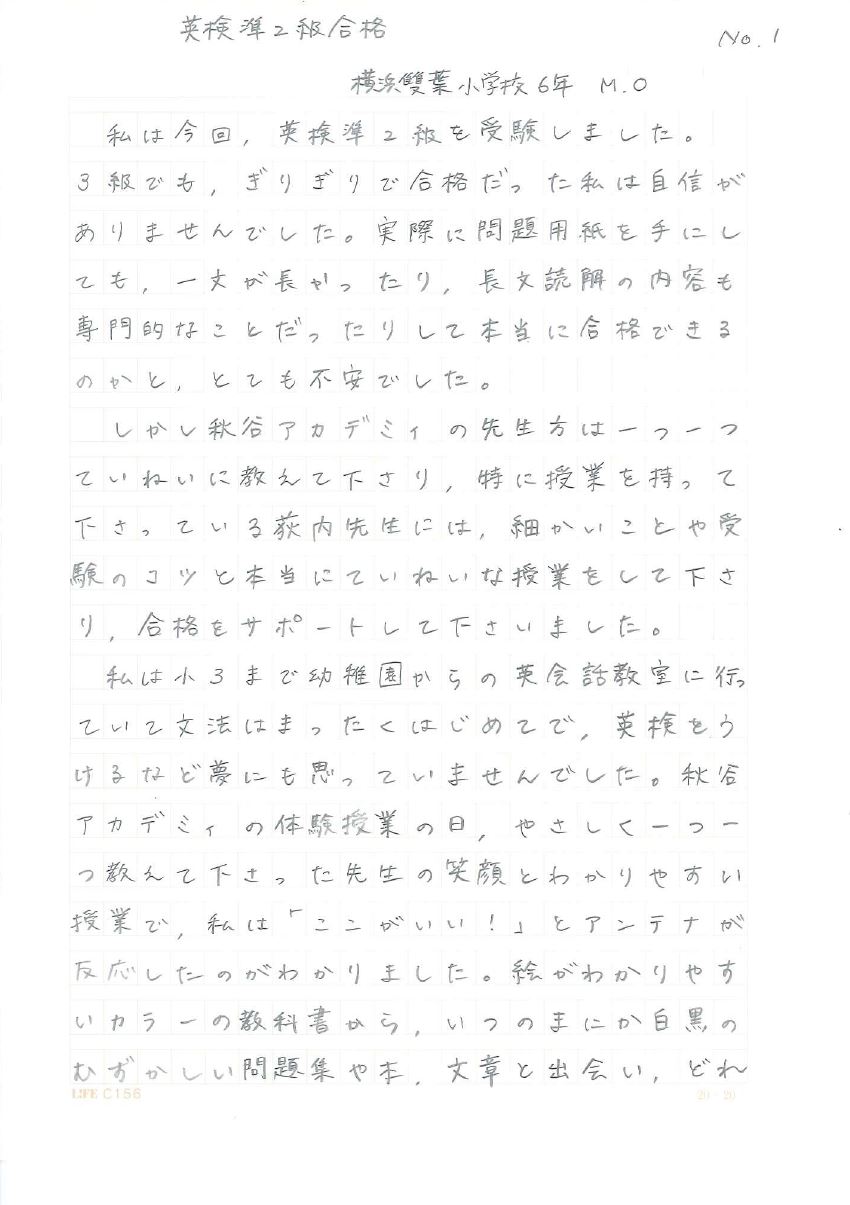 英検準2級合格
No. 1
横浜雙葉小学校6年 M.O
私は今回，英検準2級を受験しました。
3級でも，ぎりぎりで合格だった私は自信が
ありませんでした。実際に問題用紙を手にし
ても，一文が長かったり，長文読解の内容も
専門的なことだったりして本当に合格できる
のかと，とても不安でした。
しかし秋谷アカデミィの先生方は一つ一つ
ていねいに教えて下さり，特に授業を持って
下さっている荻内先生には，細かいことや受
験のコツと本当にていねいな授業をして下さ
り，合格をサポートして下さいました。
私は小3まで幼稚園からの英会話教室に行っ
ていて文法はまったくはじめてで，英検をう
けるなど夢にも思っていませんでした。秋谷
アカデミィの体験授業の日，やさしく一つ一
つ教えて下さった先生の笑顔とわかりやすい
授業で，私は「ここがいい！」とアンテナが
反応したのがわかりました。絵がわかりやす
いカラーの教科書から，いつのまにか白黒の
むずかしい問題集や本，文章と出会い，どれ
LIFE C156
20×20